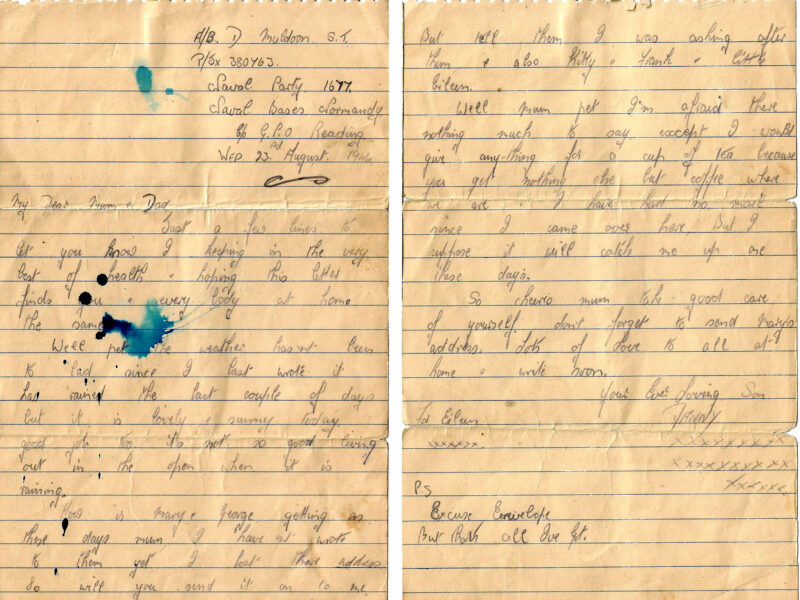 A/B. D Muldoon. S.T.
P/SX 380463.
Naval Party 1677.
Naval Bases Normandy.
C/o G.P.O Reading
Wed 23rd August. 1944
My Dear Mum & Dad
Just a few lines to
let you know I keeping in the very
best of health & hoping this letter
finds you & every body at home
the same
Well pet the weather hasnt been
to bad since I last wrote it
has rained the last couple of days
but it is lovely & sunny today.
good job too, it's not so good living
out in the open when it is
raining.
How is Mary & George getting on
these days mum, I have nt wrote
to them yet I lost there address
so will you send it on to me.
But tell them I was asking after
them & also Kitty & Frank & little
Eileen.
Well Mum pet I'm afraid there
nothing much to say except I would
give any-thing for a cup of tea because
you get nothing else but coffee where
we are. I have had no mail
since I came over here, But I
suppose it will catch me up one
these day's.
So cheerio mum take good care
of yourself, don't forget to send Mary's
address. Lots of love to all at
home & write soon.
Your Ever Loving Son
For Eileen DANNY
xxxxxxx. xxxxxxxxxxx
xxxxxxxxxx
xxxxxx.
P.S
Excuse Envelope
But thats all Ive got.